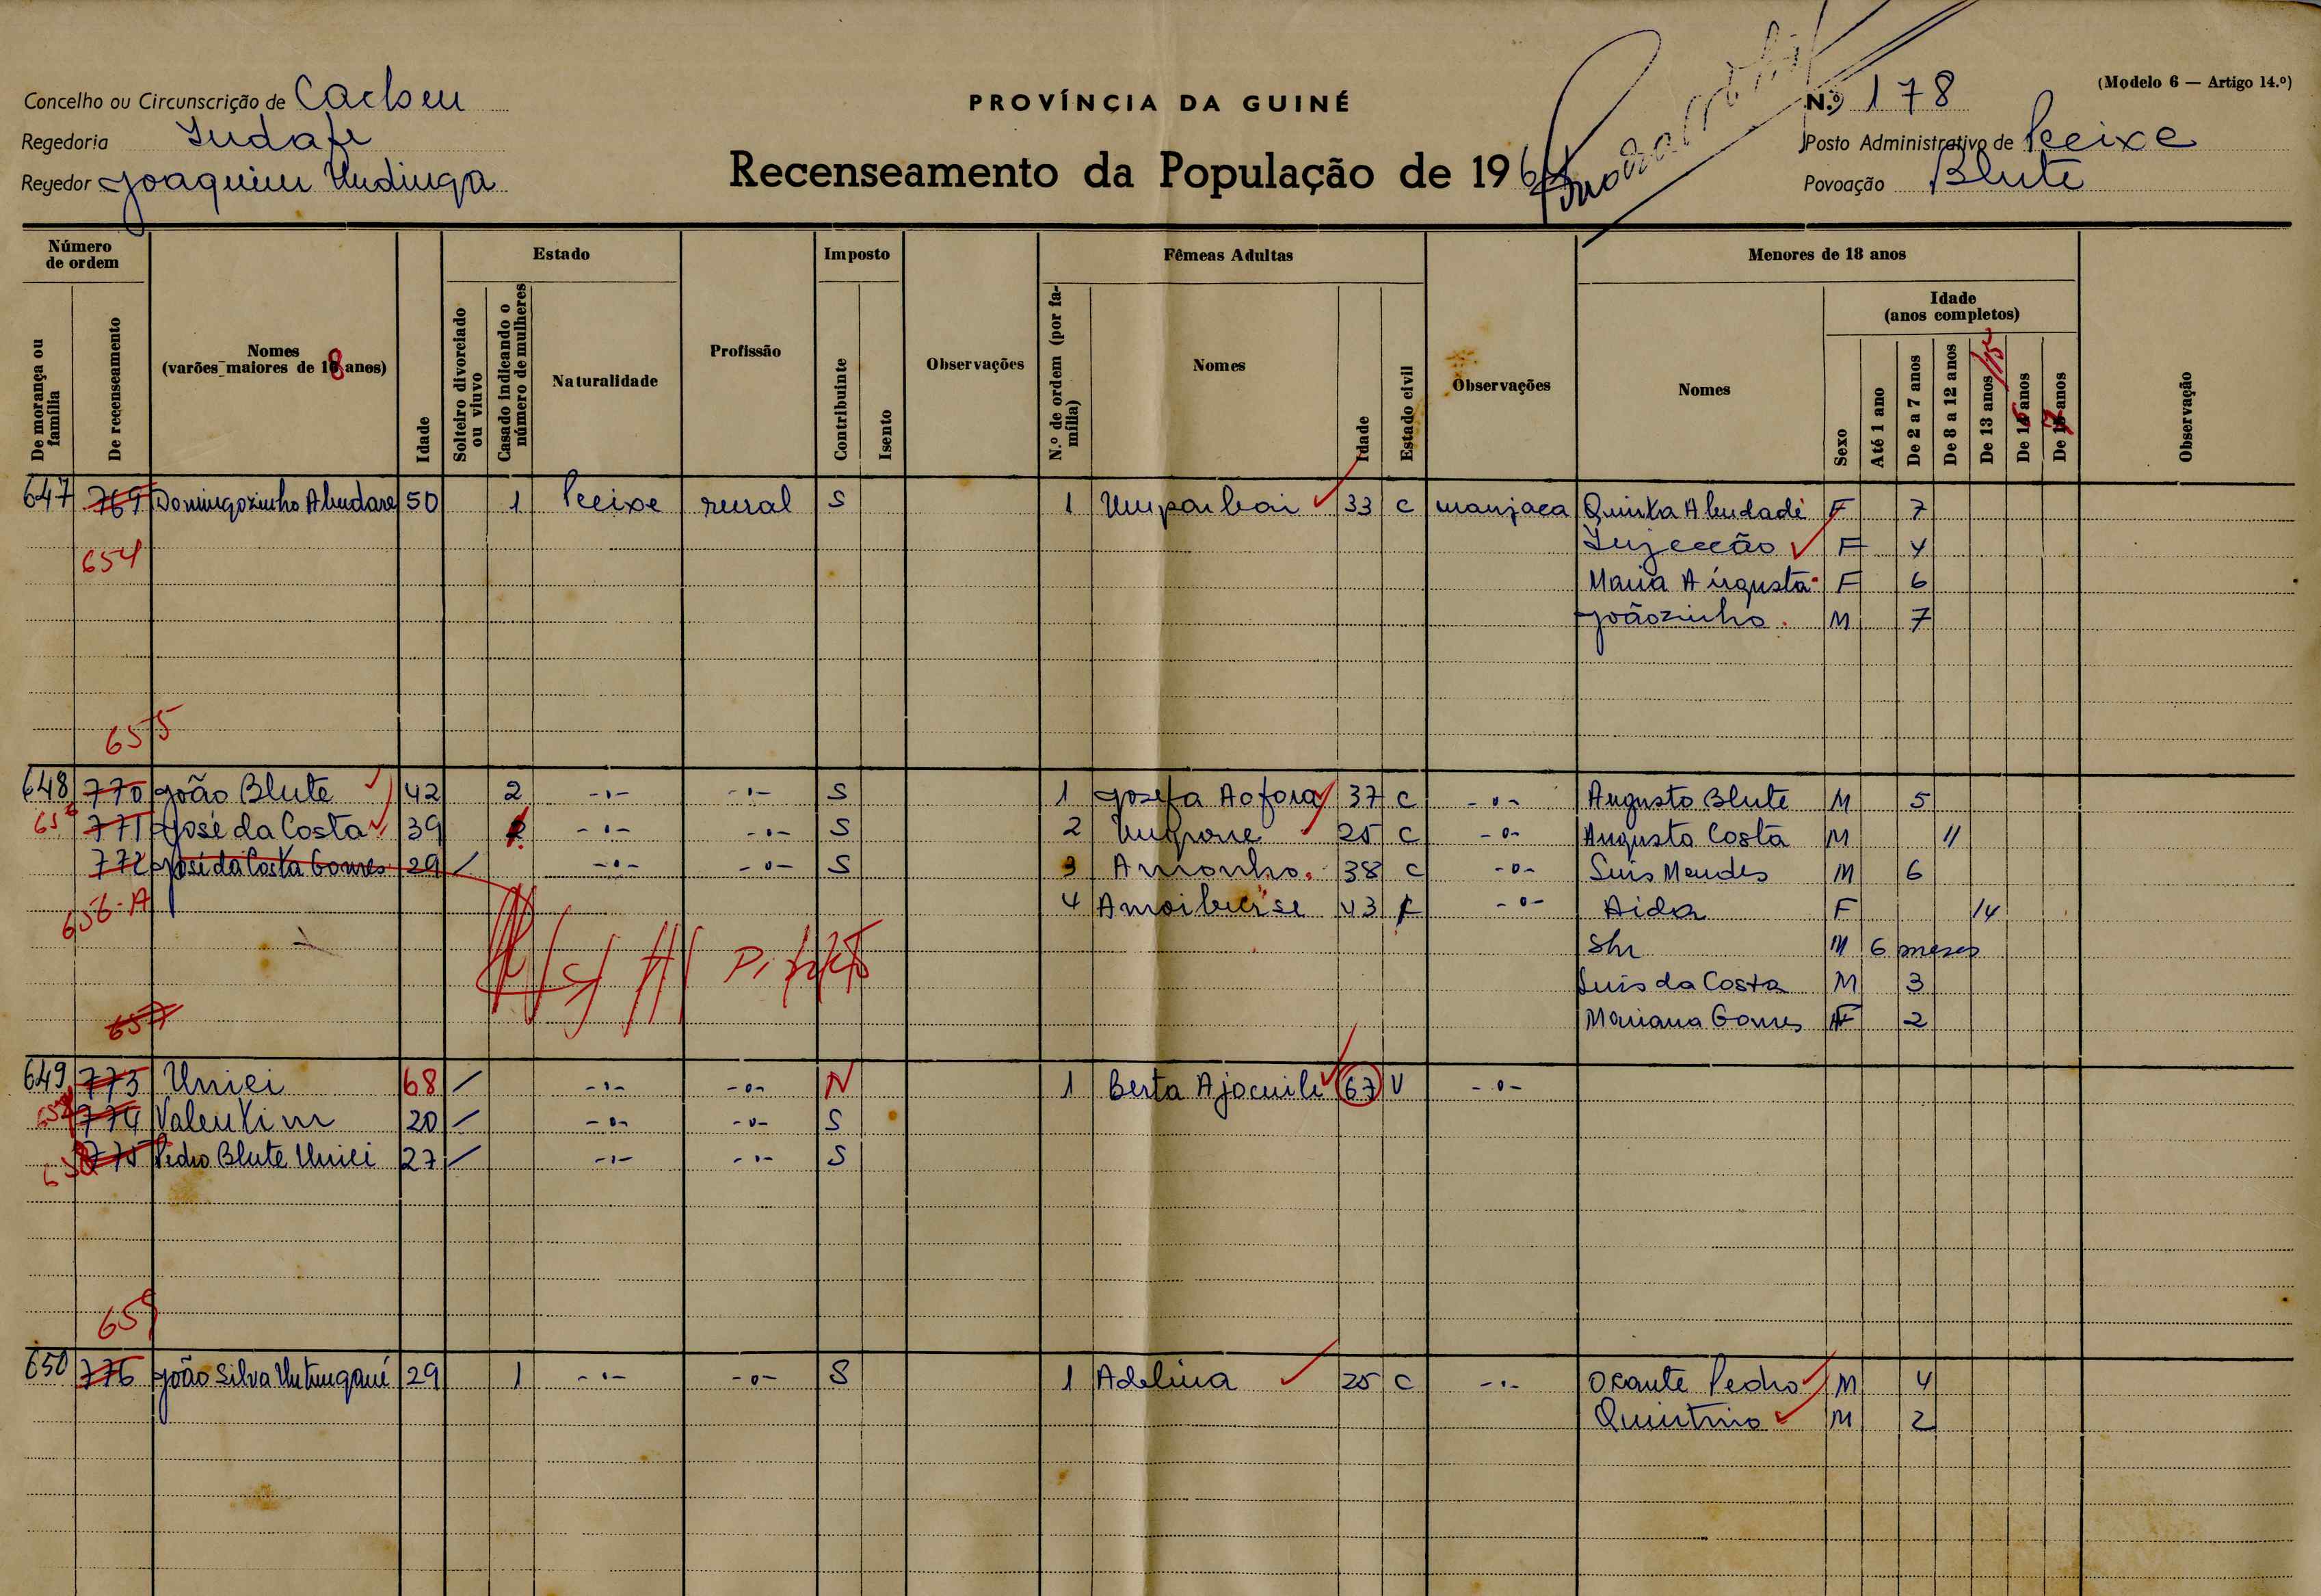 Concelho ou Circunscrição de Cacheu
Regedoria
Regedor Joaquim Undinga
PROVÍNCIA DA GUINÉ
Recenseamento da População de 196
N.º 178
(Modelo 6 — Artigo 14.º)
Posto Administrativo de Pecixe
Povoação Blute
Número de ordem
De morança ou família
De recenseamento
Nomes (varões maiores de 18 anos)
Idade
Estado
Solteiro divorciado ou viuvo
Casado indicando o número de mulheres
Naturalidade
Profissão
Imposto
Contribuinte
Isento
Observações
Fêmeas Adultas
N.º de ordem (por família)
Nomes
Idade
Estado civil
Observações
Menores de 18 anos
Nomes
Sexo
Idade (anos completos)
Até 1 ano
De 2 a 7 anos
De 8 a 12 anos
De 13 anos /15
De 16 anos
De 17 anos
Observação
647 769 Domingozinho 50 1 Pecixe rural S 1 33 C manjaca Quinta F 7
654 Injecção F 4
Maria Augusta F 6
Joãozinho M 7
655
648 770 João Blute 42 2 -"- -"- S 1 Josefa 37 C -"- Augusto Blute M 5
656 771 José da Costa 39 -"- -"- S 2 25 C -"- Augusto Costa M 11
772 José da Costa Gomes 29 / -"- -"- S 3 Amonho 38 C -"- Luis Mendes M 6
656-A 4 43 -"- Aida F 14
M 6 meses
Luis da Costa M 3
657 Mariana Gomes F 2
649 773 Uniei 68 / -"- -"- N 1 Berta 67 V -"-
774 Valentim 20 / -"- -"- S
658 775 Pedro Blute Uniei 27 / -"- -"- S
659
650 776 João Silva 29 1 -"- -"- S 1 Adelina 25 C -"- Ocante Pedro M 4
Quintino M 2